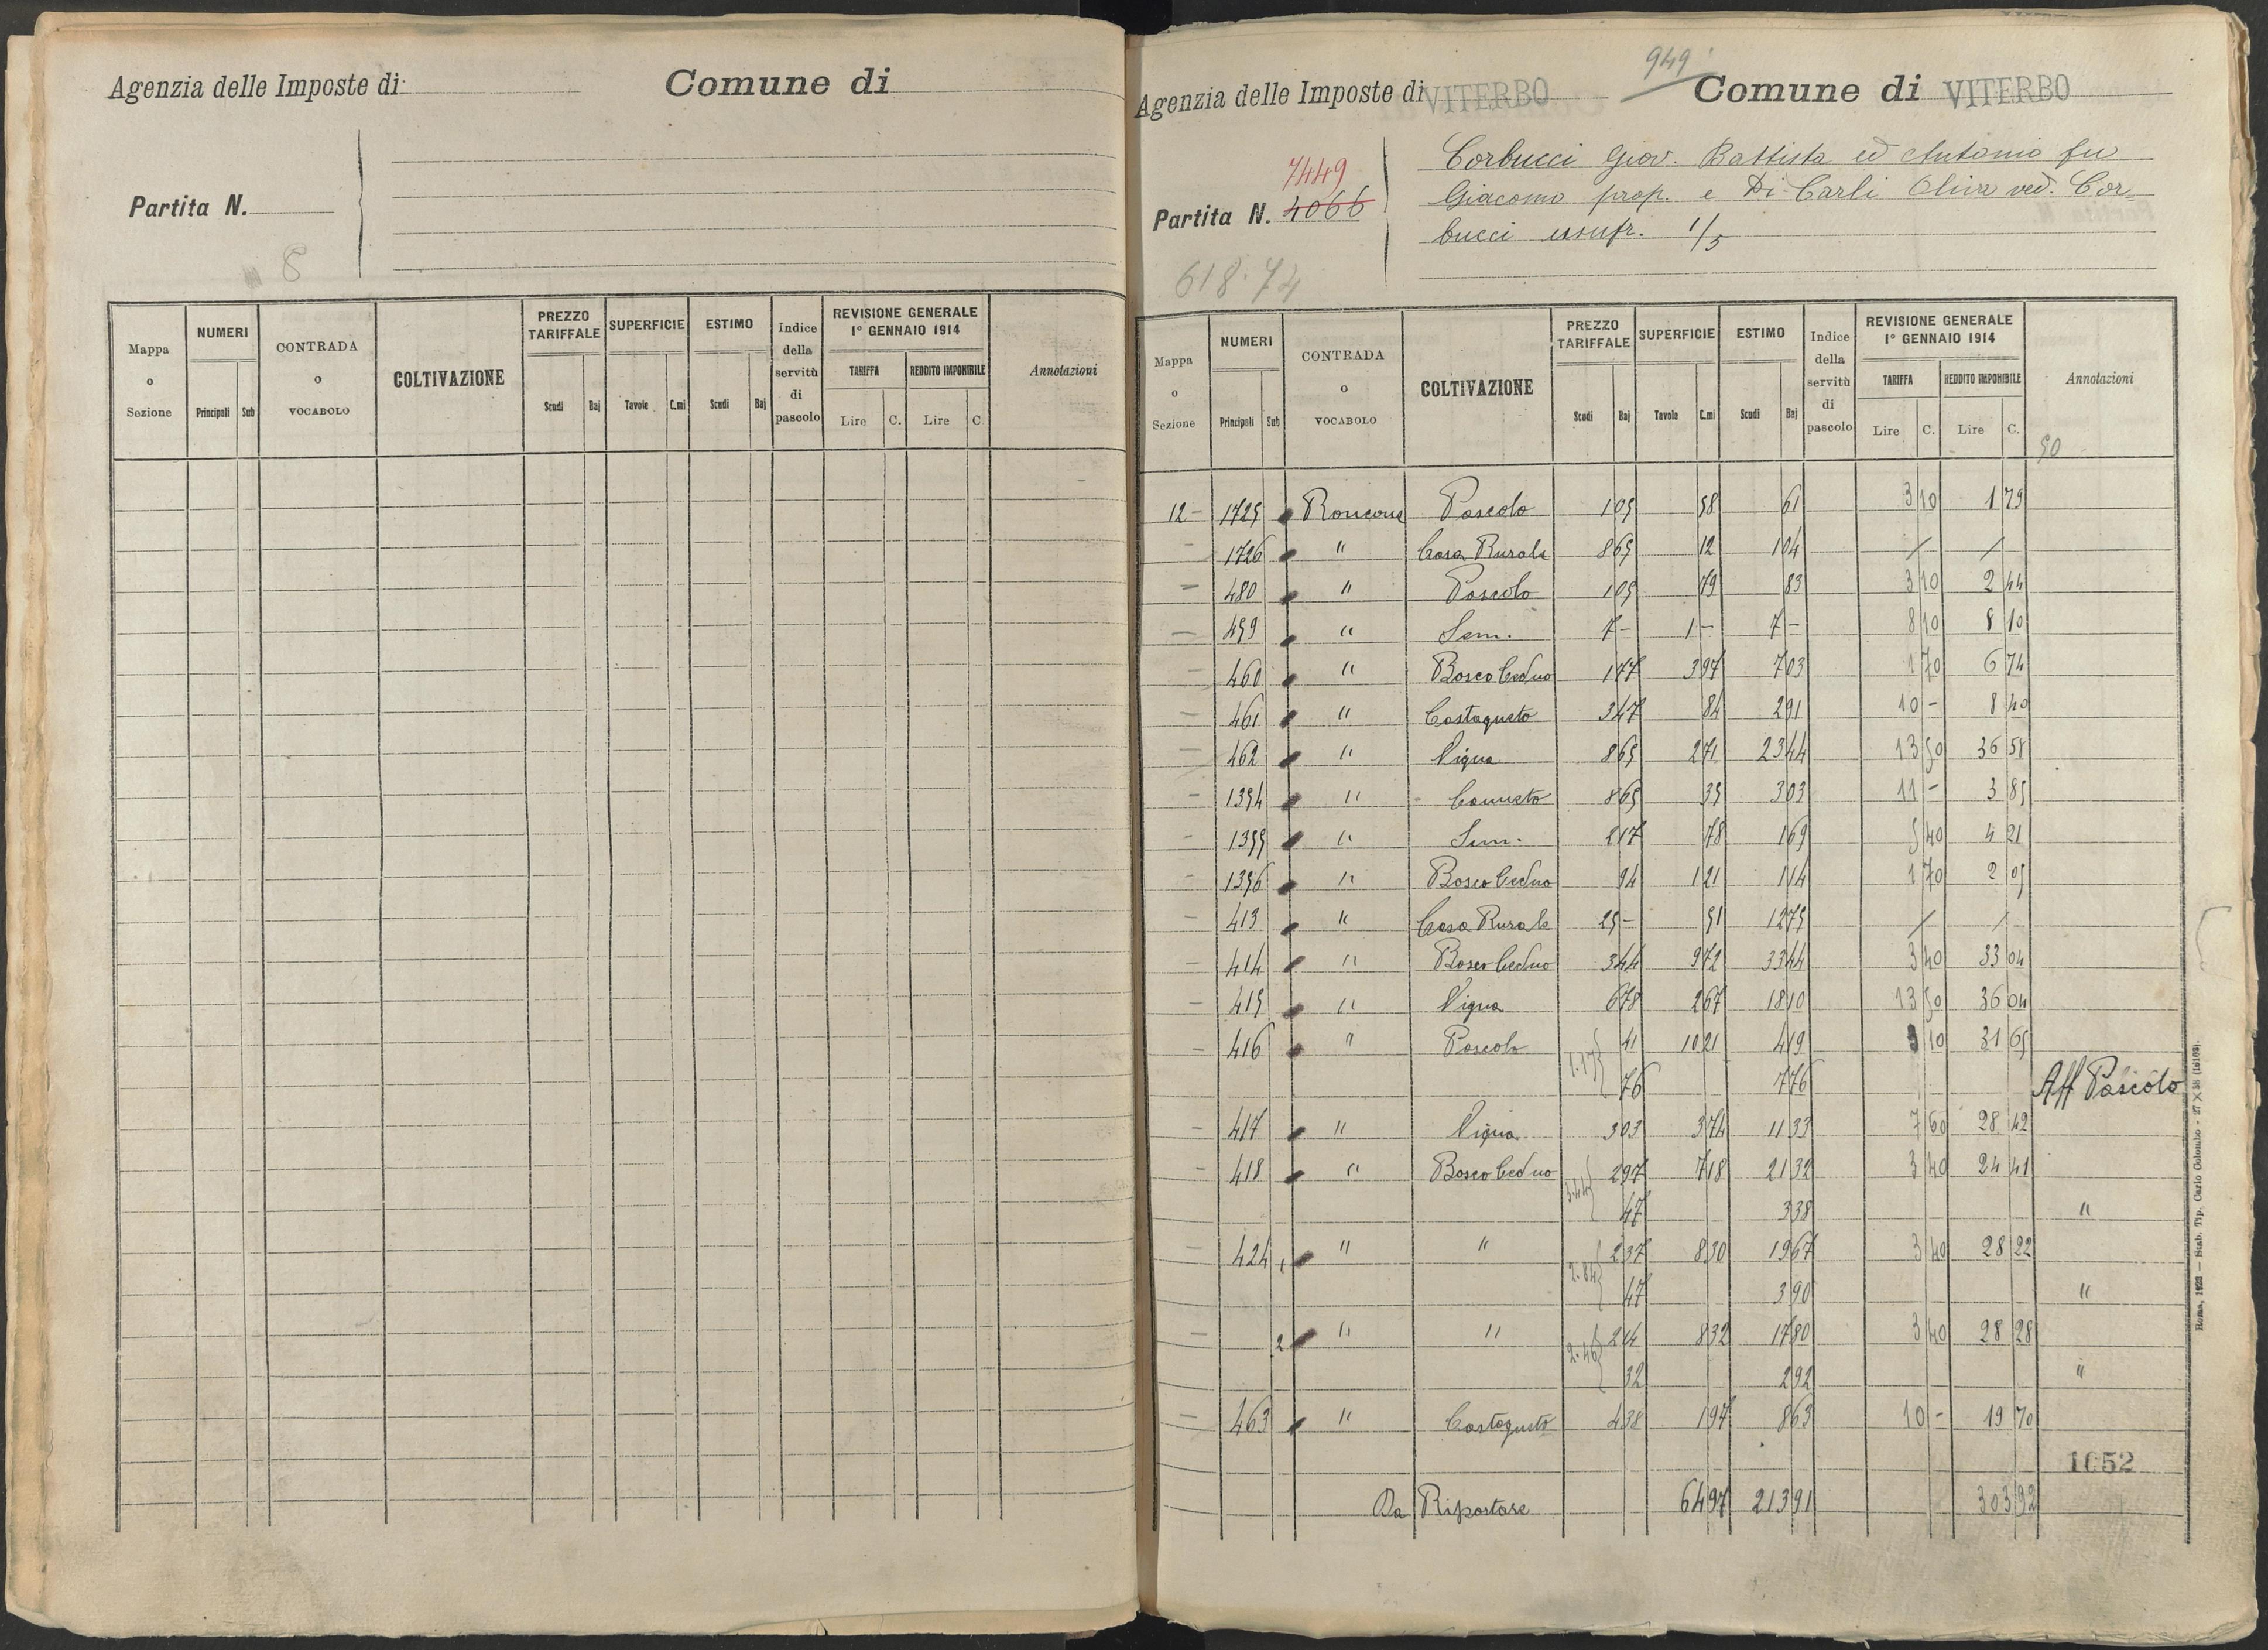 Agenzia delle Imposte di
Comune di
Partita N.
8
Mappa o Sezione
NUMERI
Principali Sub
CONTRADA o VOCABOLO
COLTIVAZIONE
PREZZO TARIFFALE
Scudi Baj
SUPERFICIE
Tavole C.mi
ESTIMO
Scudi Baj
Indice della servitù di pascolo
REVISIONE GENERALE 1° GENNAIO 1914
TARIFFA
Lire C.
REDDITO IMPONIBILE
Lire C
Annotazioni
949
Agenzia delle Imposte di VITERBO
Comune di VITERBO
7449
Partita N. 4066
Corbucci Giov. Battista ed Antonio fu
Giacomo prop. e Di Carli Oliva ved. Cor=
bucci usufr. 1/5
618.74
Mappa o Sezione
NUMERI
Principali Sub
CONTRADA o VOCABOLO
COLTIVAZIONE
PREZZO TARIFFALE
Scudi Baj
SUPERFICIE
Tavole C.mi
ESTIMO
Scudi Baj
Indice della servitù di pascolo
REVISIONE GENERALE 1° GENNAIO 1914
TARIFFA
Lire C.
REDDITO IMPONIBILE
Lire C.
Annotazioni
50
12 - 1725 Roncone Pascolo 1 05 58 61 3 10 1 79
- 1726 " Casa Rurale 8 65 12 1 04 / /
- 480 " Pascolo 1 05 79 83 3 10 2 44
- 459 " Sem. 7 - 1 - 7 - 8 10 8 10
- 460 " Bosco Ceduo 1 77 3 97 7 03 1 70 6 74
- 461 " Castagneto 3 47 84 2 91 10 - 8 40
- 462 " Vigna 8 65 2 71 23 44 13 50 36 58
- 1354 " Canneto 8 65 35 3 03 11 - 3 85
- 1355 " Sem. 2 17 78 1 69 5 40 4 21
- 1356 " Bosco Ceduo 94 1 21 1 14 1 70 2 05
- 413 " Casa Rurale 25 - 51 12 75 / /
- 414 " Bosco Ceduo 3 44 9 72 33 44 3 40 33 04
- 415 " Vigna 6 78 2 67 18 10 13 50 36 04
- 416 " Pascolo 41 10 21 4 19 3 10 31 65
1.17 76 7 76 Aff Pascolo
- 417 " Vigna 3 03 3 74 11 33 7 60 28 42
- 418 " Bosco Ceduo 2 97 7 18 21 32 3 40 24 41
3.44 47 3 38 "
- 424 1 " " 2 37 8 30 19 67 3 40 28 22
2.84 47 3 90 "
- 2 " " 2 14 8 32 17 80 3 40 28 28
2.46 32 2 92 "
- 463 " Castagneto 4 38 1 97 8 63 10 - 19 70
1652
Da Riportare 64 97 213 91 303 92
Roma, 1922 — Stab. Tip. Carlo Colombo